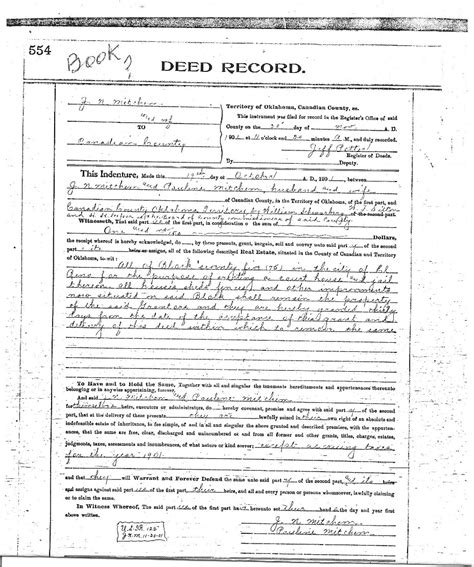 554
BOOK?
DEED RECORD.
J. N. Mitchem
and wf
TO
Canadian County
Territory of Oklahoma, Canadian County, ss.
This instrument was filed for record in the Register's Office of said
County on the 20 day of Nov A. D.
190 , at o'clock and minutes M., and duly recorded.
Register of Deeds.
By Deputy.
This Indenture, Made this 19th day of October A. D., 1901, between
J. N. Mitchem and Pauline Mitchem, husband and wife
of Canadian County, in the Territory of Oklahoma, of the first part, and
Canadian County Oklahoma Territory by William
of the second part.
Witnesseth, That said part of the first part, in consideration of the sum of
One and no/100 Dollars,
the receipt whereof is hereby acknowledged, do by these presents, grant, bargain, sell and convey unto said part of the second
part its heirs or assigns, all of the following described Real Estate, situated in the County of Canadian and Territory
of Oklahoma, to wit:
All of Block seventy five (75) in the city of El
Reno for the purpose of erecting a court house and jail
thereon all houses, sheds, fences and other improvements
now situated on said Block shall remain the property
of the said grantors and they are hereby granted thirty
days from the date of the acceptance of this grant and
delivery of this deed within which to remove the same
To Have and to Hold the Same, Together with all and singular the tenements hereditaments and appurtenances thereunto
belonging or in anywise appertaining, forever.
And said J. N. Mitchem and Pauline Mitchem
for themselves heirs, executors or administrators, do hereby covenant, promise and agree with said part of the second
part, that at the delivery of these presents they are lawfully seized in their own right of an absolute and
indefeasible estate of inheritance, in fee simple, of and in all and singular the above granted and described premises, with the appurten-
ances, that the same are free, clear, discharged and unincumbered of and from all former and other grants, titles, charges, estates,
judgments, taxes, assessments and incumbrances, of what nature or kind soever; except accruing taxes
for the year 1901
and that they will Warrant and Forever Defend the same unto said part of the second part, its
and assigns against said part of the first part, their heirs, and all and every person or persons whomsoever, lawfully claiming
or to claim the same.
In Witness Whereof, The said part of the first part have hereunto set their hand the day and year first
above written.
J. N. Mitchem
Pauline Mitchem